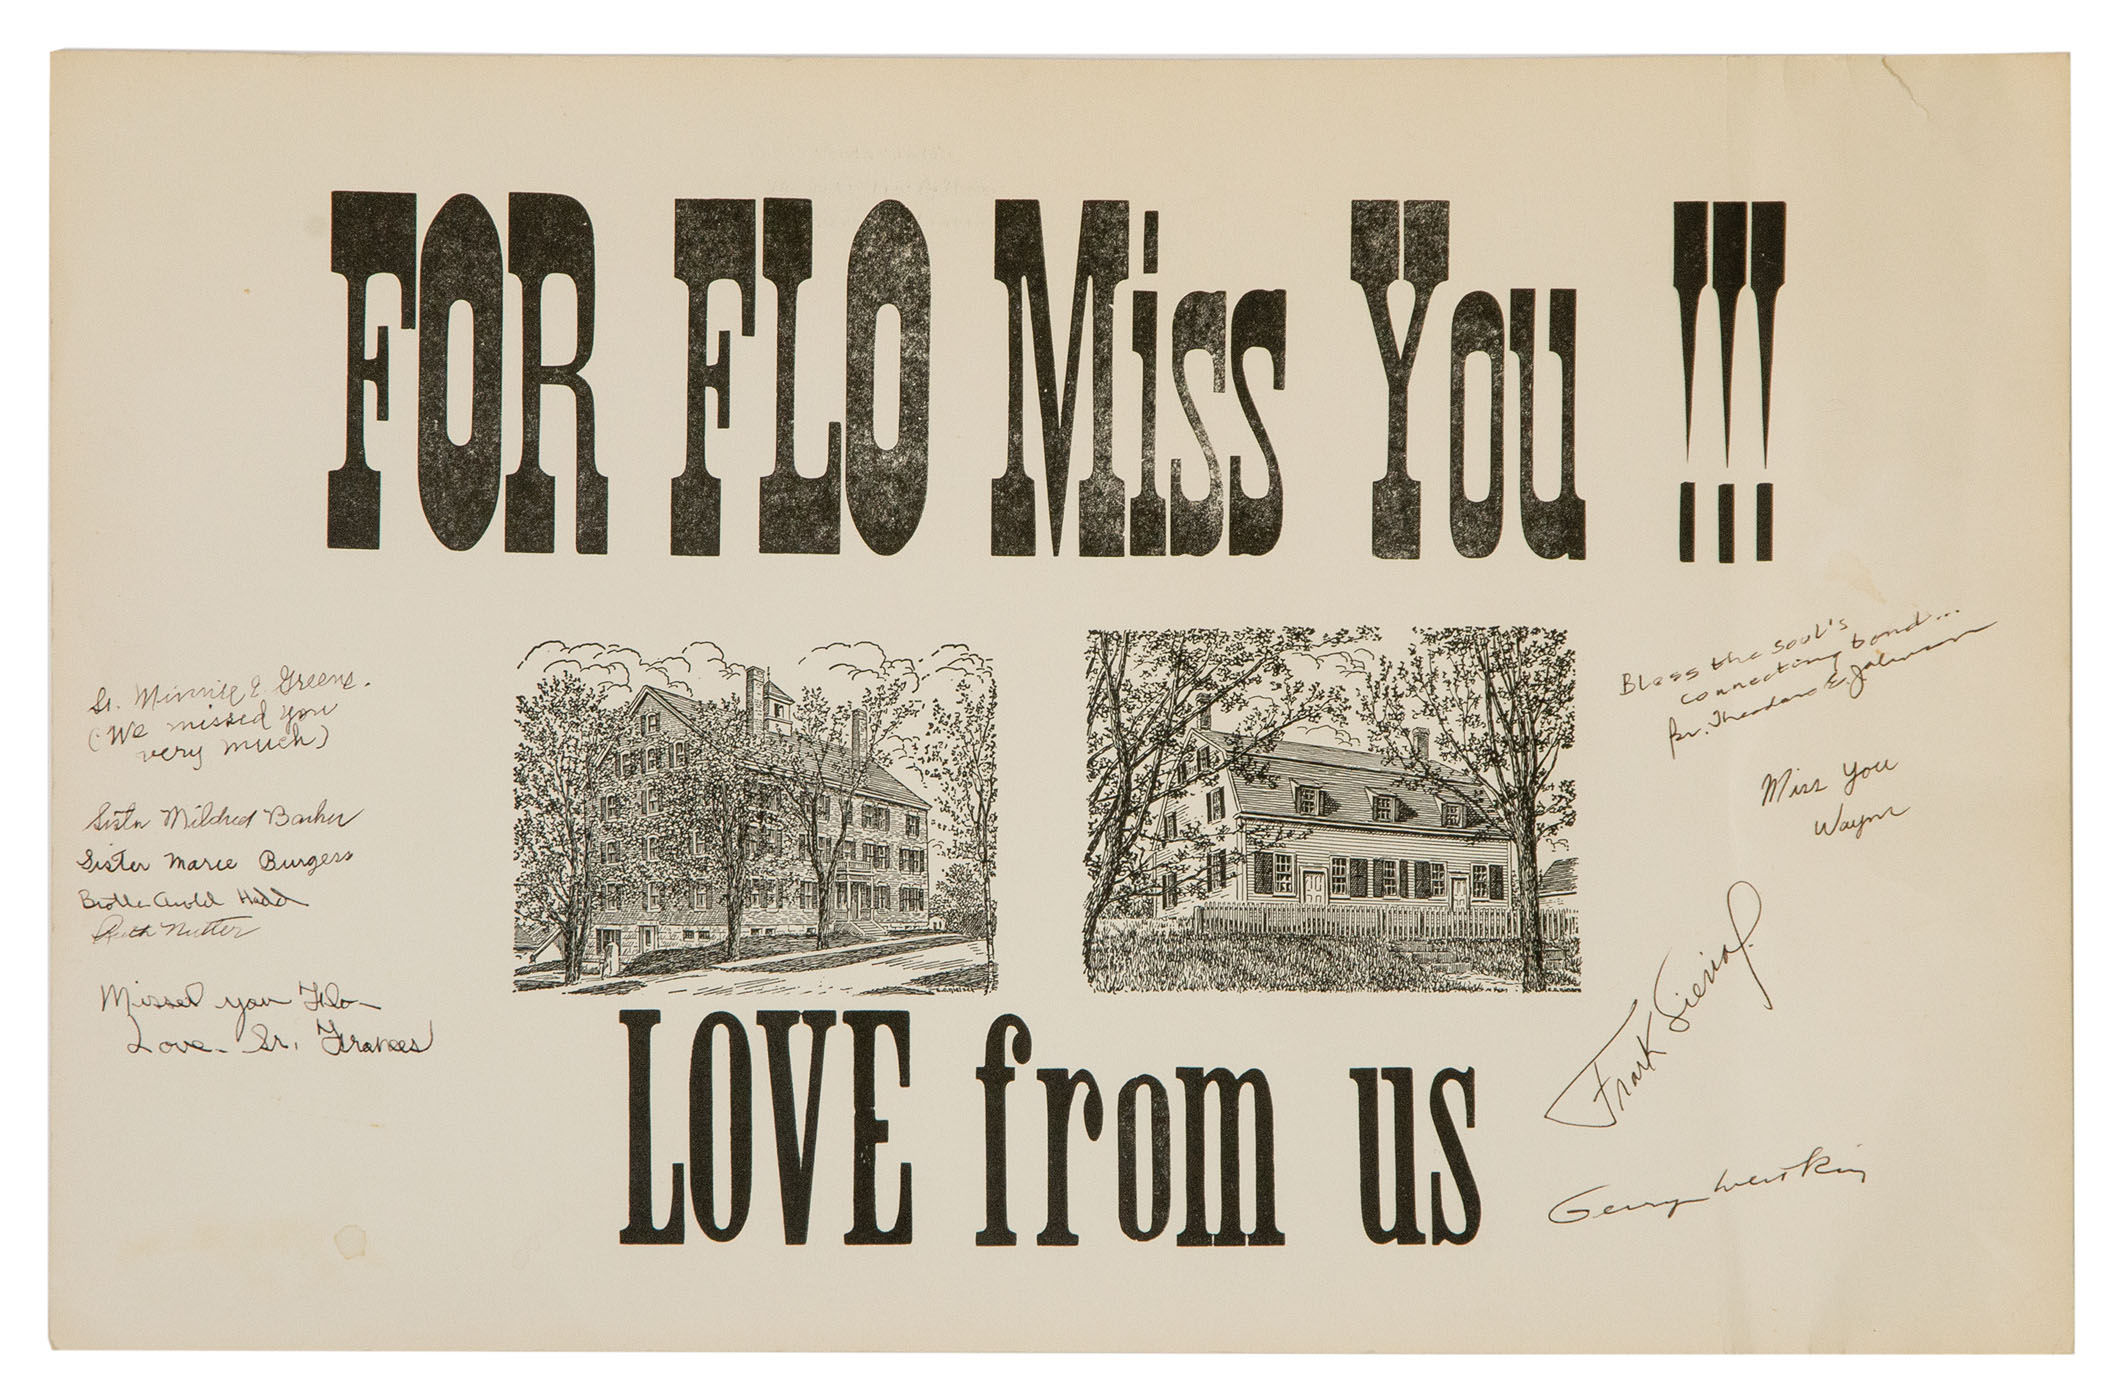 FOR FLO Miss You !!!
Sr. Minnie E. Greene.
(We missed you
very much)
Sister Mildred Barker
Sister Marie Burgess
Brother Arnold Hadd
Ruth Nutter
Missed you Flo-
Love- Sr. Frances
Bless the soul's
connecting bond...
Br. Theodore E. Johnson
Miss You
Wayne
Frank
LOVE from us